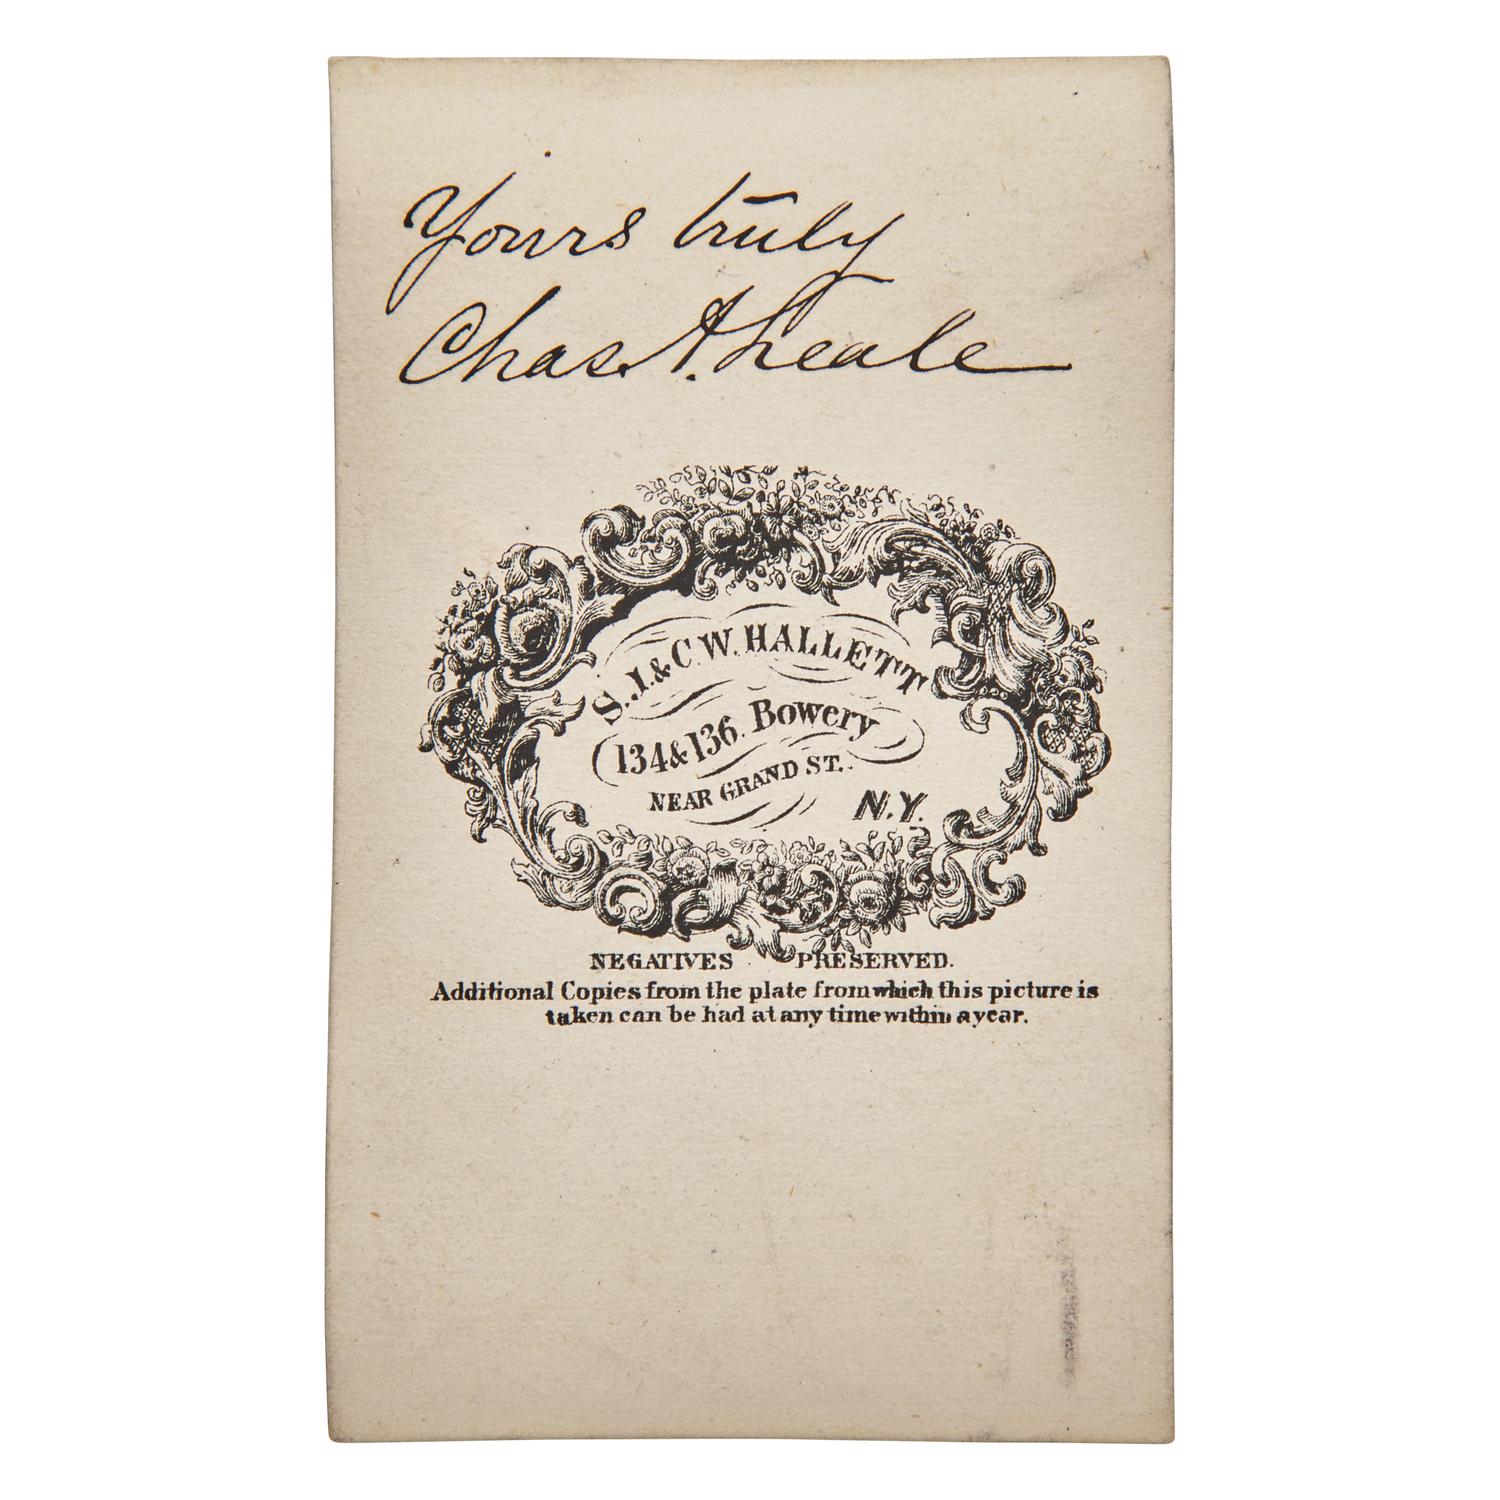 Yours truly
Chas. A. Leale
S. J. & C. W. HALLETT
134 & 136. Bowery
NEAR GRAND ST.
N.Y.
NEGATIVES PRESERVED.
Additional Copies from the plate from which this picture is
taken can be had at any time within a year.